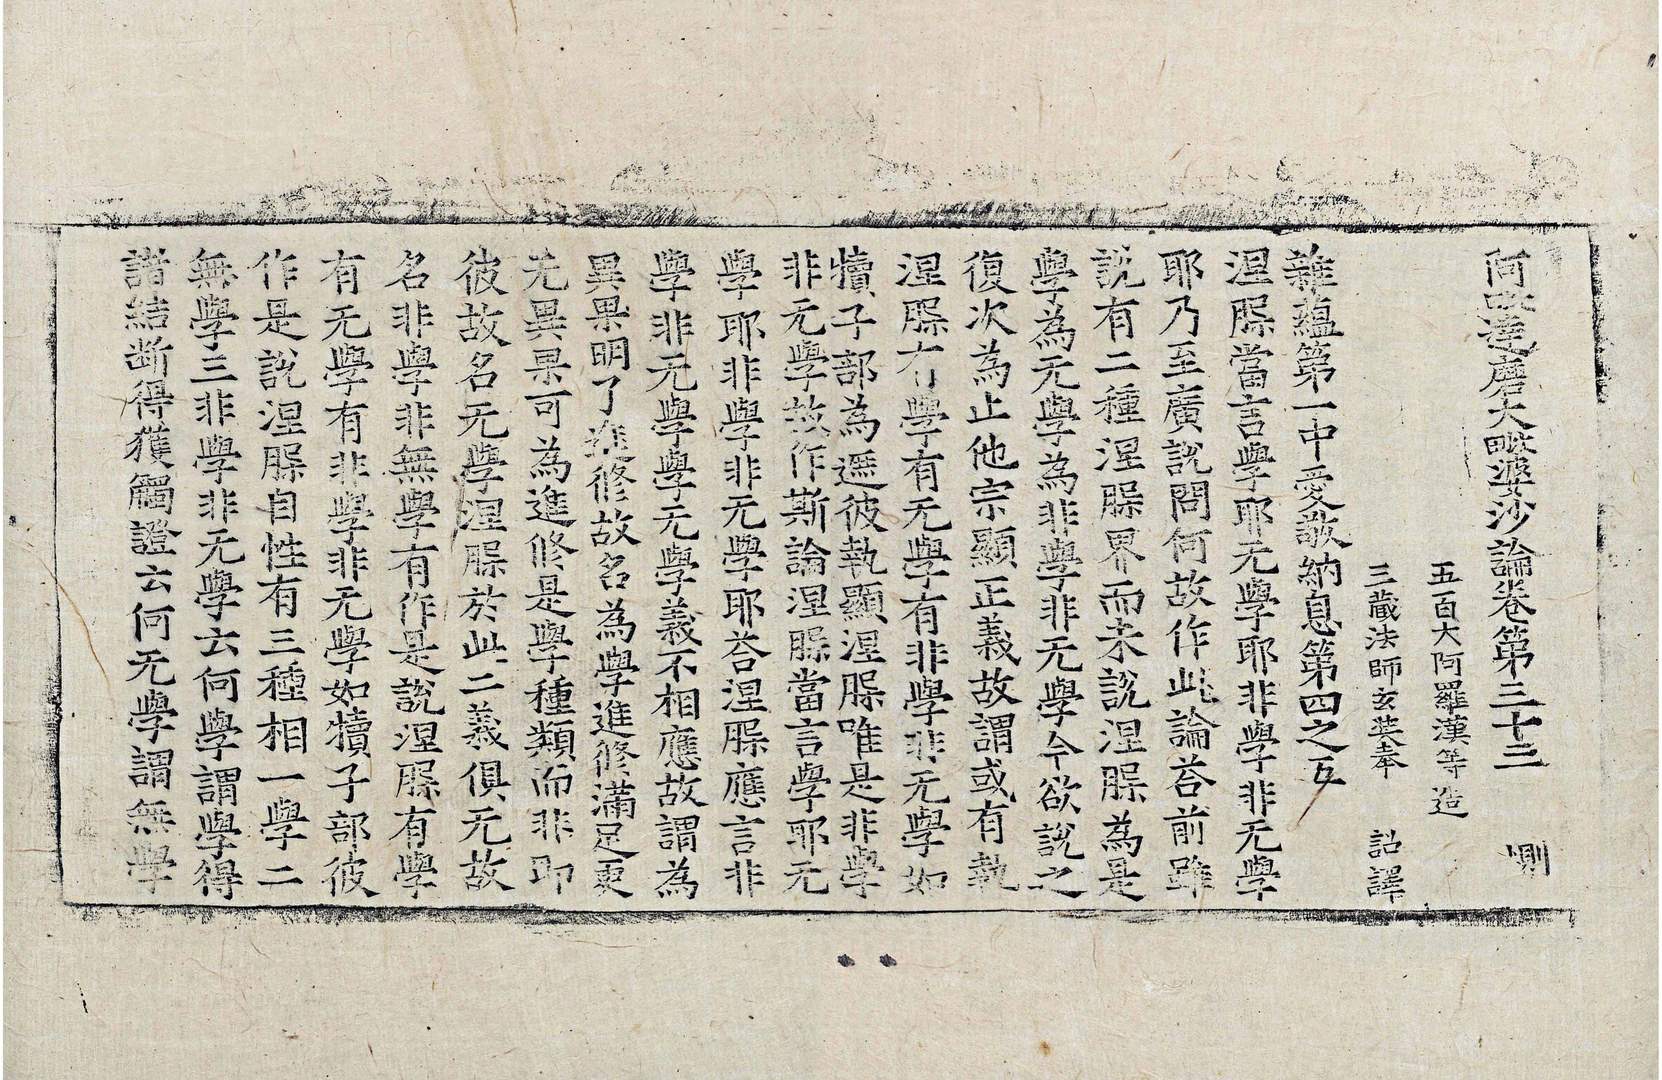 阿毗達磨大毗婆沙論卷第三十三 惻
五百大阿羅漢等造
三藏法師玄奘奉 詔譯
雜蘊第一中愛敬納息第四之五
涅槃當言學耶无學耶非學非无學
耶乃至廣說問何故作此論荅前雖
說有二種涅槃界而未說涅槃為是
學為无學為非學非无學今欲說之
復次為止他宗顯正義故謂或有執
涅槃有學有无學有非學非无學如
犢子部為遮彼執顯涅槃唯是非學
非无學故作斯論涅槃當言學耶无
學耶非學非无學耶荅涅槃應言非
學非无學學无學義不相應故謂為
異果明了進修故名為學進修滿足更
无異果可為進修是學種類而非即
彼故名无學涅槃於此二義俱无故
名非學非無學有作是說涅槃有學
有无學有非學非无學如犢子部彼
作是說涅槃自性有三種相一學二
無學三非學非无學云何學謂學得
諸結断得獲觸證云何无學謂無學